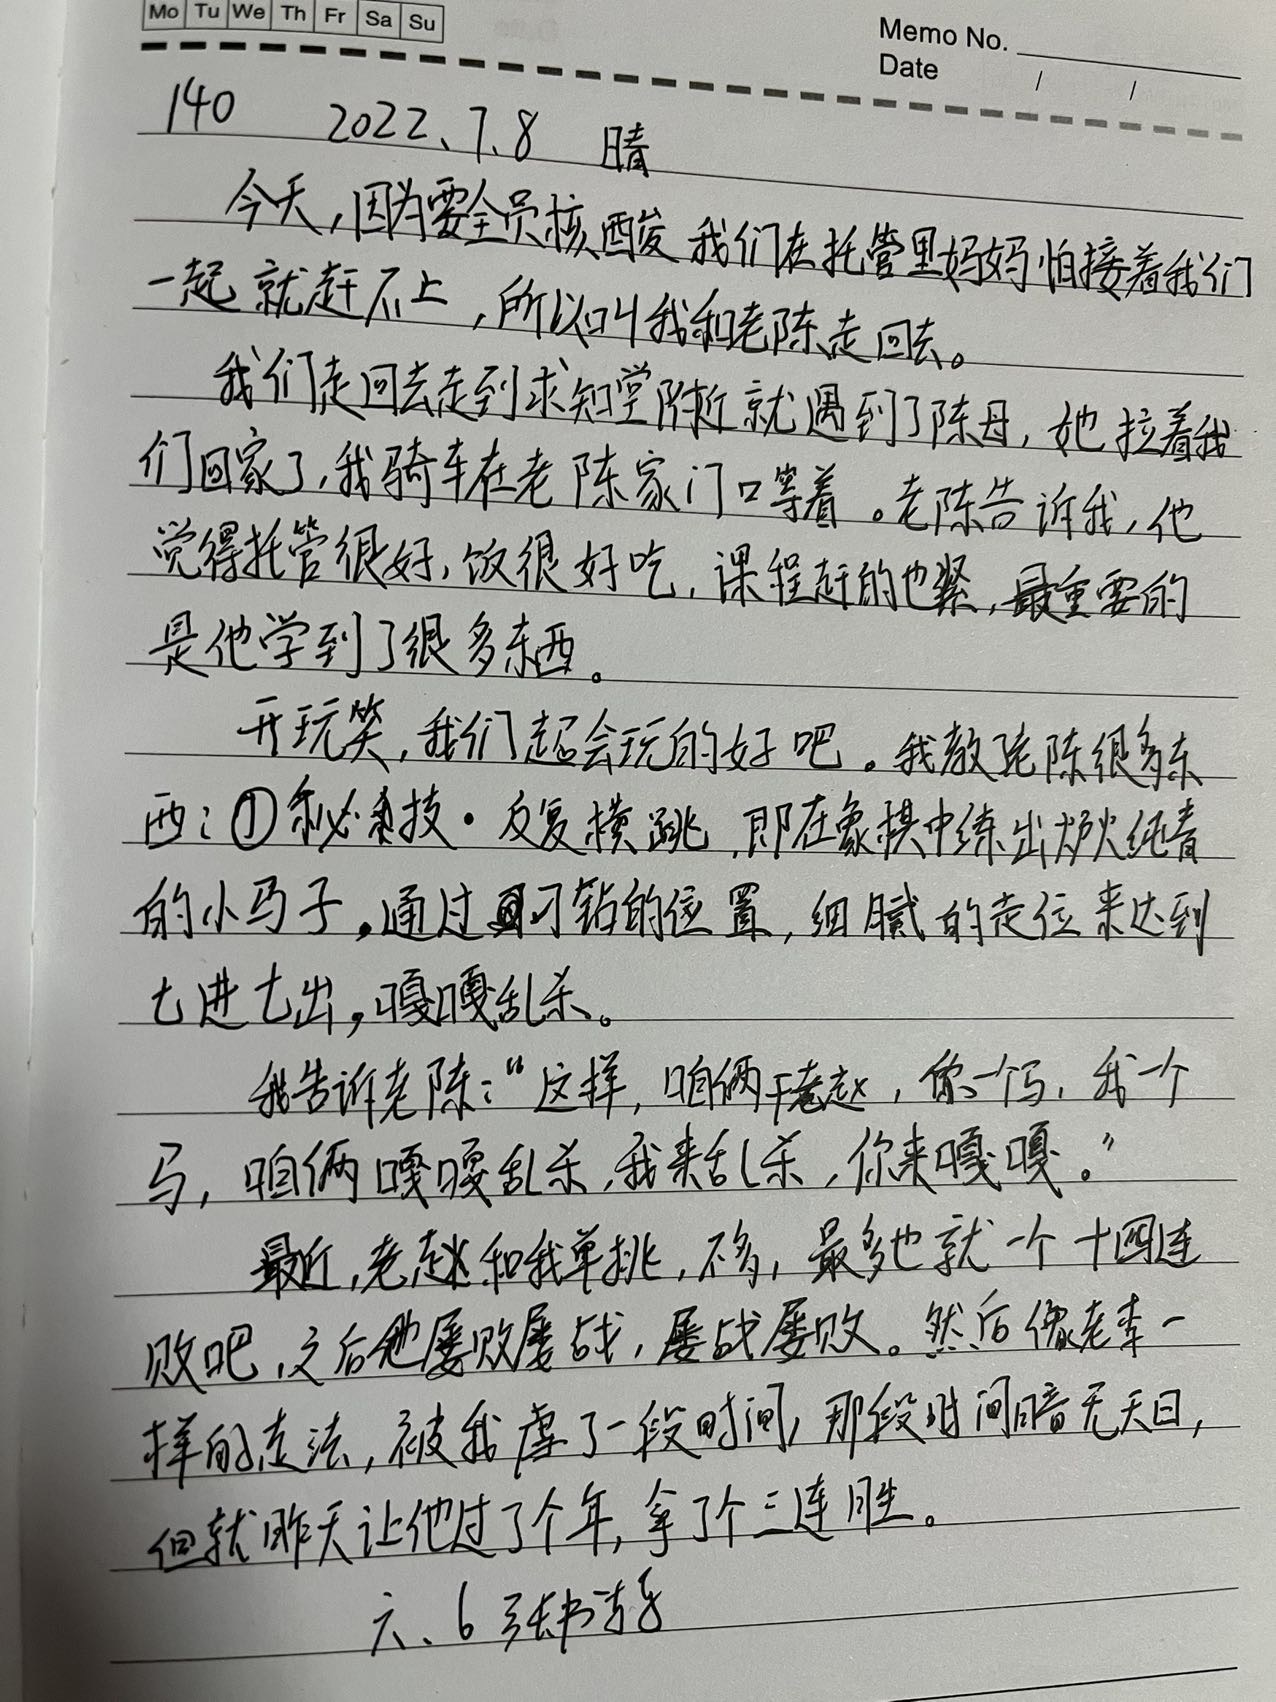 Mo Tu We Th Fr Sa Su
Memo No.
Date / /
140 2022、7.8 晴
今天，因为要全员核酸 我们在托管里妈妈怕接着我们
一起就赶不上，所以叫我和老陈走回去。
我们走回去走到求知堂附近就遇到了陈母，她拉着我
们回家了，我骑车在老陈家门口等着。老陈告诉我，他
觉得托管很好，饭很好吃，课程赶的也紧，最重要的
是他学到了很多东西。
开玩笑，我们超会玩的好吧。我教老陈很多东
西：①秘技·反复横跳，即在象棋中练出炉火纯青
的小马子，通过刁钻的位置，细腻的走位来达到
七进七出，嘎嘎乱杀。
我告诉老陈：“这样，咱俩干老赵，你一个马，我一个
马，咱俩嘎嘎乱杀，我来乱杀，你来嘎嘎。”
最近，老赵和我单挑，不多，最多也就一个十四连
败吧，之后他屡败屡战，屡战屡败。然后像老李一
样的走法，被我虐了一段时间，那段时间暗无天日，
但就昨天让他过了个年，拿了个三连胜。
六、6 张书